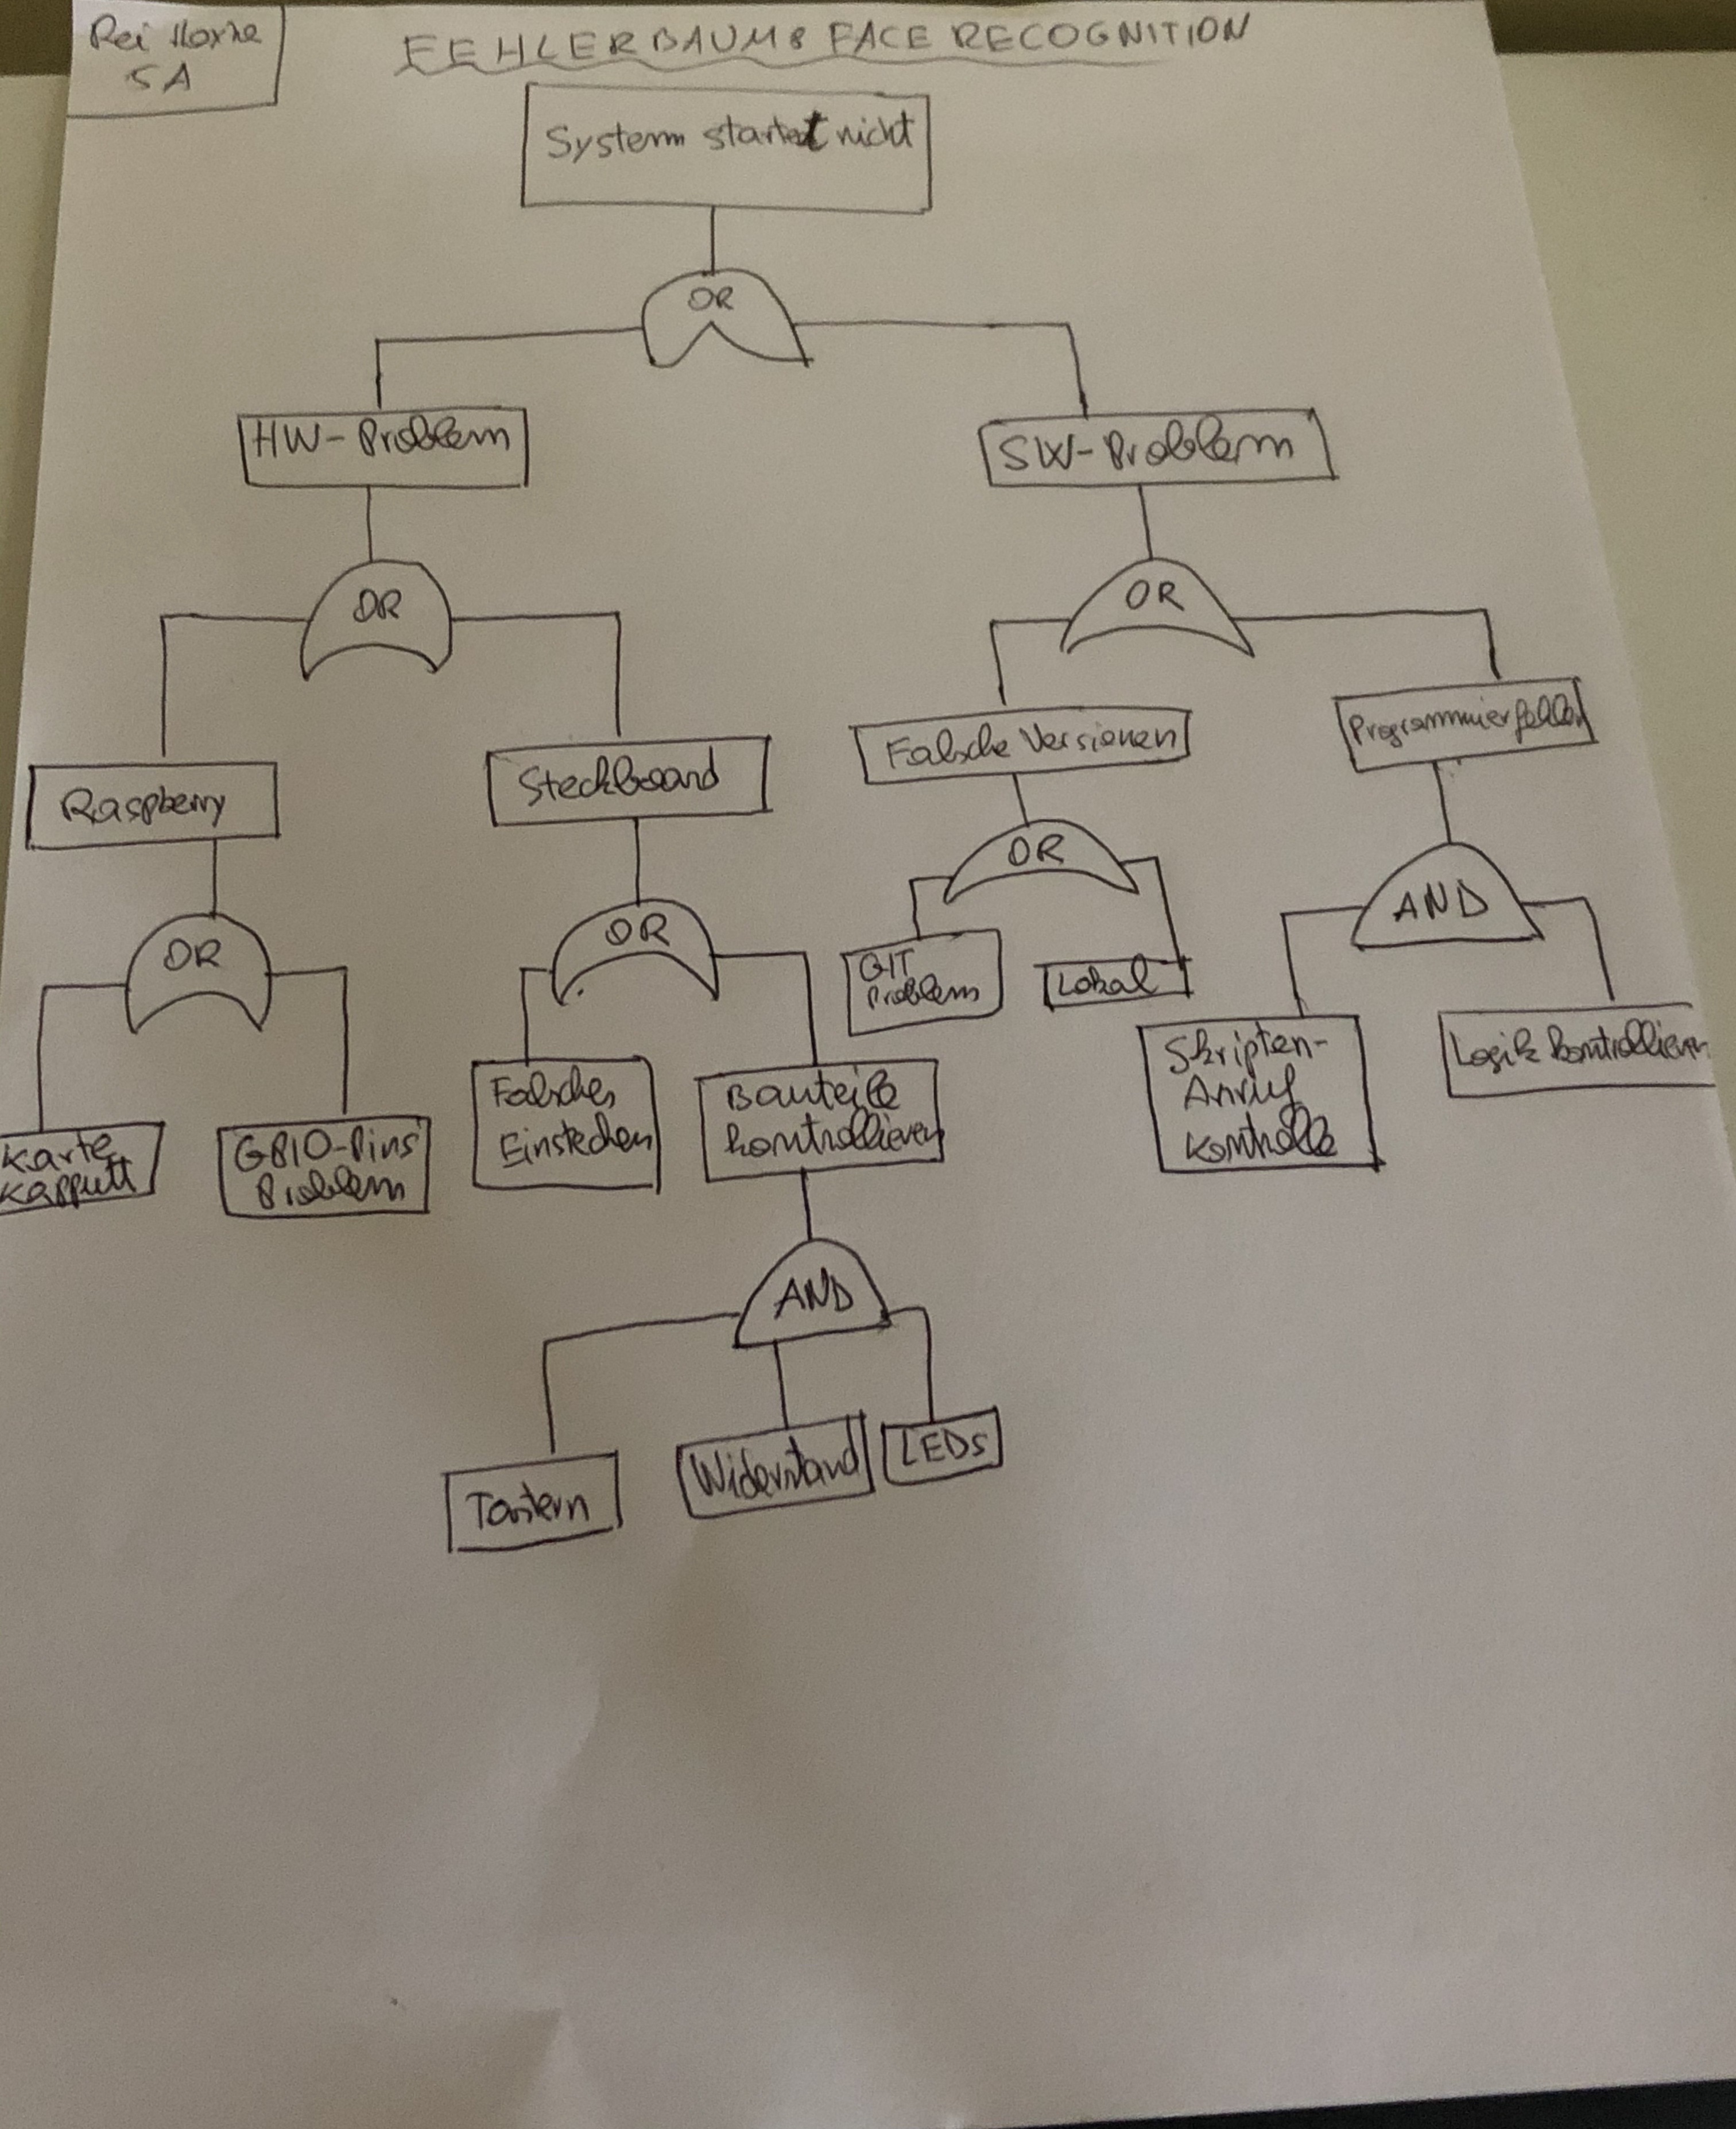 Rei
5A
FEHLERBAUM: FACE RECOGNITION
System startet nicht
OR
HW-Problem
SW-Problem
OR
OR
Raspberry
Steckboard
Falsche Versionen
Programmierfehler
OR
OR
OR
AND
Karte
Kapputt
GPIO-Pins
Problem
Falsches
Einstecken
Bauteile
kontrollieren
GIT
Problem
Lokal
Skripten-
Anruf
Kontrolle
Logik kontrollieren
AND
Tastern
Widerstand
LEDs